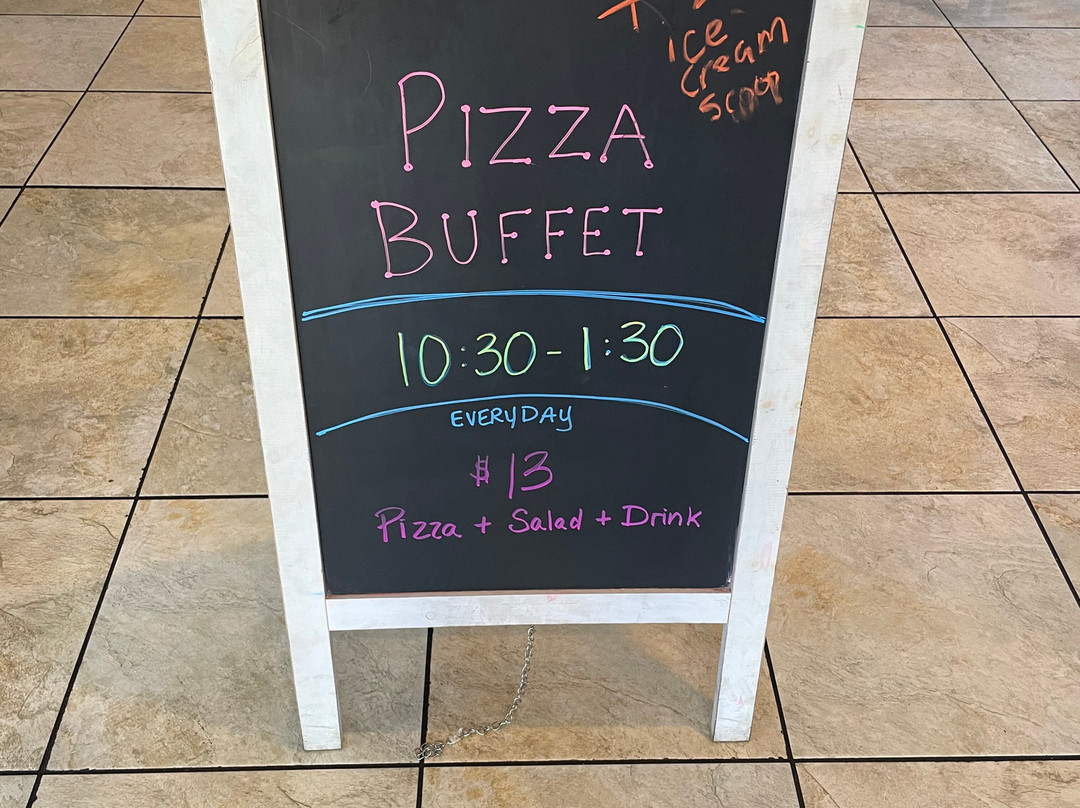 Ice
Cream
Scoop
PIZZA
BUFFET
10:30-1:30
EVERYDAY
$13
Pizza + Salad + Drink